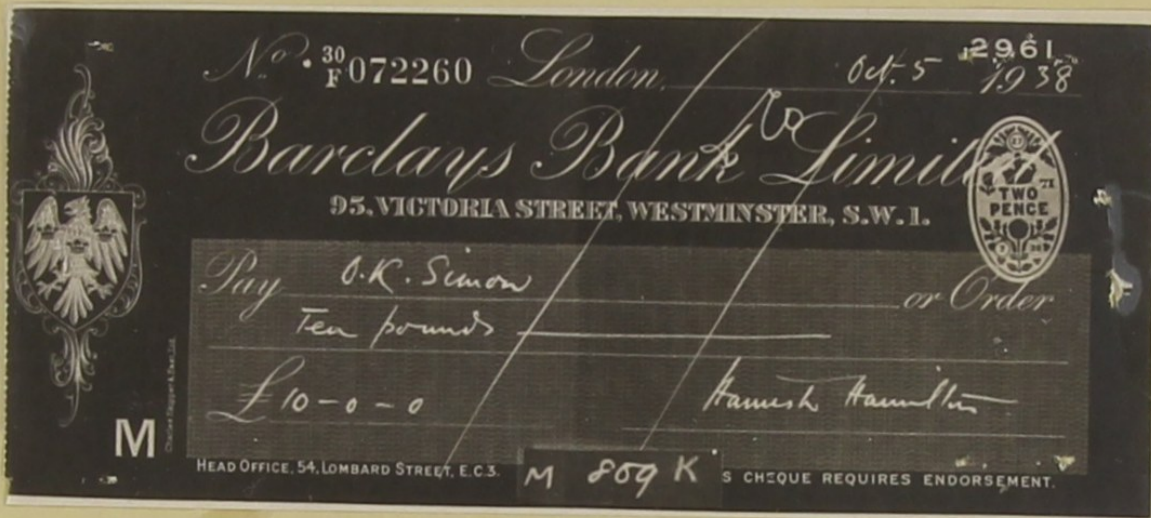 2961
No. 30/F 072260 London, Oct. 5 1938
& Co
Barclays Bank Limited
95, VICTORIA STREET, WESTMINSTER, S.W.1.
TWO PENCE
Pay O.K. Simon or Order
Ten pounds
£ 10-0-0 Hamish Hamilton
M
HEAD OFFICE, 54, LOMBARD STREET, E.C.3. M 809 K S CHEQUE REQUIRES ENDORSEMENT.